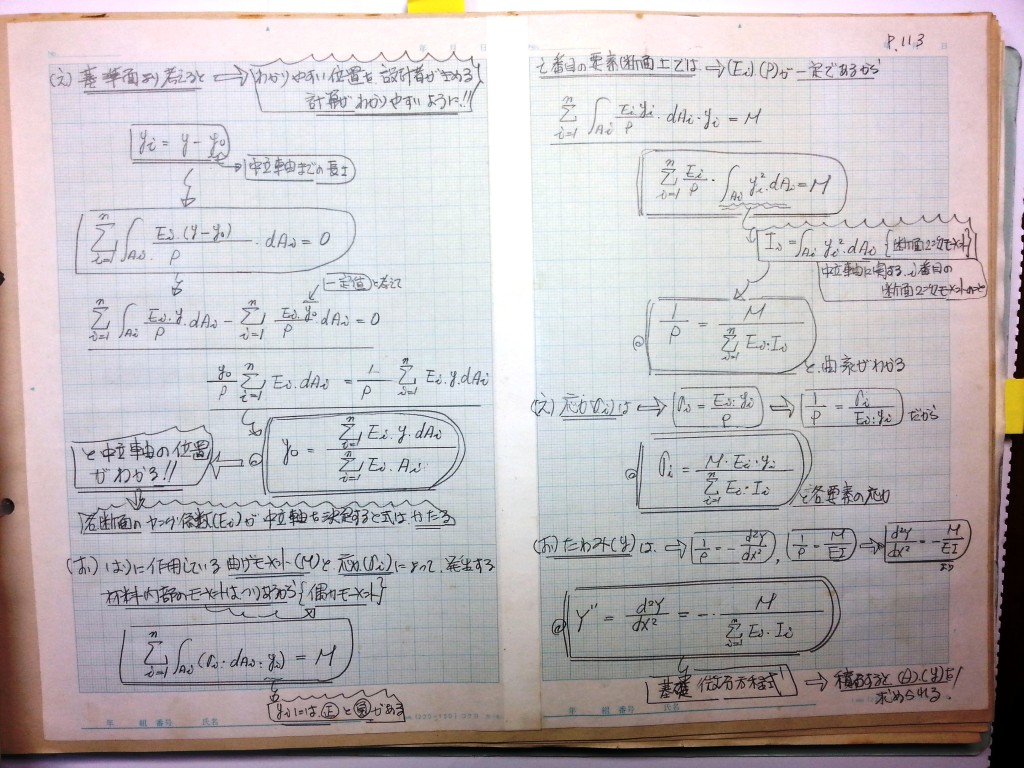 (え) 基準面より考えると → わかりやすい位置を設計者がきめる
計算がわかりやすいように!!
yi = y - y0
中立軸までの長さ
Σ_{i=1}^{n} ∫_{Ai} Ei・(y-y0)/ρ ・dAi = 0
一定値と考えて
Σ_{i=1}^{n} ∫_{Ai} Ei・y/ρ ・dAi - Σ_{i=1}^{n} Ei・y0/ρ ・dAi = 0
y0/ρ Σ_{i=1}^{n} Ei・dAi = 1/ρ ・Σ_{i=1}^{n} Ei・y・dAi
と中立軸の位置
がわかる!!
y0 = Σ_{i=1}^{n} Ei・y・dAi / Σ_{i=1}^{n} Ei・Ai
各断面のヤング係数(Ei)が中立軸を決定すると式はかたる
(お) はりに作用している曲げモーメント(M)と応力(σi)によって、発生する
材料内部のモーメントはつりあうから{偶力モーメント}
Σ_{i=1}^{n} ∫_{Ai} (σi・dAi・yi) = M
yiには正と負がある
年 組 番号 氏名
P.113
i番目の要素(断面上では → (Ei)(ρ)が一定であるから
Σ_{i=1}^{n} ∫_{Ai} Ei・yi/ρ ・dAi・yi = M
Σ_{i=1}^{n} Ei/ρ ・∫_{Ai} yi²・dAi = M
Ii = ∫_{Ai} yi²・dAi {断面2次モーメント}
中立軸に関する i番目の
断面2次モーメントのこと
1/ρ = M / Σ_{i=1}^{n} Ei・Ii
と曲率がわかる
(え) 応力(σi)は → σi = Ei・yi/ρ → 1/ρ = σi/Ei・yi だから
σi = M・Ei・yi / Σ_{i=1}^{n} Ei・Ii
i各要素の応力
(お) たわみ(y)は、→ 1/ρ = -d²y/dx² , 1/ρ = M/EI → d²y/dx² = -M/EI
より
Y'' = d²y/dx² = -・M / Σ_{i=1}^{n} Ei・Ii
基礎微分方程式 → 積分すると(θ)・(y)が
求められる.
年 組 番号 氏名